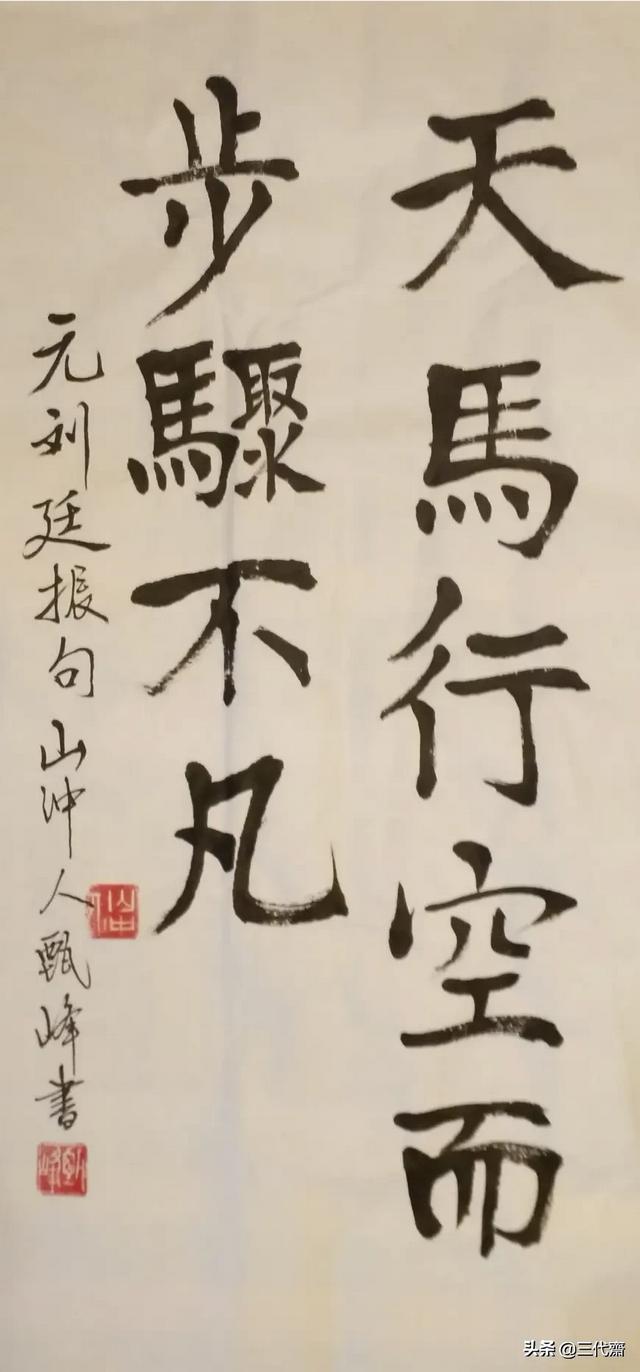 天馬行空而
步驟不凡
元刘廷振句山冲人甄峰書
头条 @三代齋